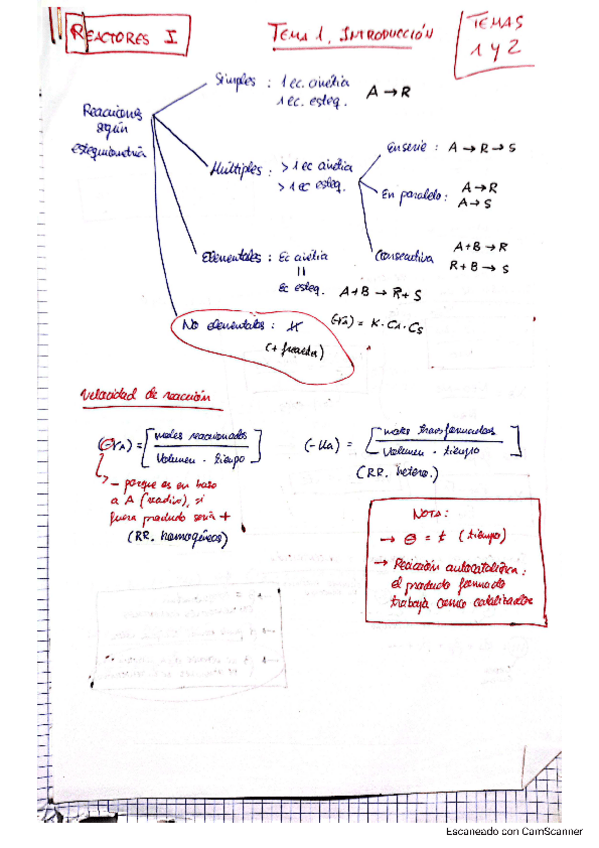 REACTORES I
TEMA 1. INTRODUCCIÓN
TEMAS
1 y 2
Reacciones
según
estequiometría
Simples : 1 ec. cinética
1 ec. esteq.
A → R
Múltiples : > 1 ec cinética
> 1 ec esteq.
En serie : A → R → S
En paralelo : A → R
A → S
Consecutiva
A + B → R
R + B → S
Elementales : Ec cinética
=
Ec esteq. A + B → R + S
(-rA) = K · CA · CS
No elementales : ≠
(+ frecuentes)
Velocidad de reacción
(-rA) = [ moles reaccionados
Volumen · tiempo ]
→ - porque es en base
a A (reactivo), si
fuera producto sería +
(RR. homogéneas)
= [ moles transformados
Volumen · tiempo ]
(RR. hetero.)
NOTA:
→ θ = t (tiempo)
→ Reacción autocatalítica :
el producto formado
trabaja como catalizador
Escaneado con CamScanner